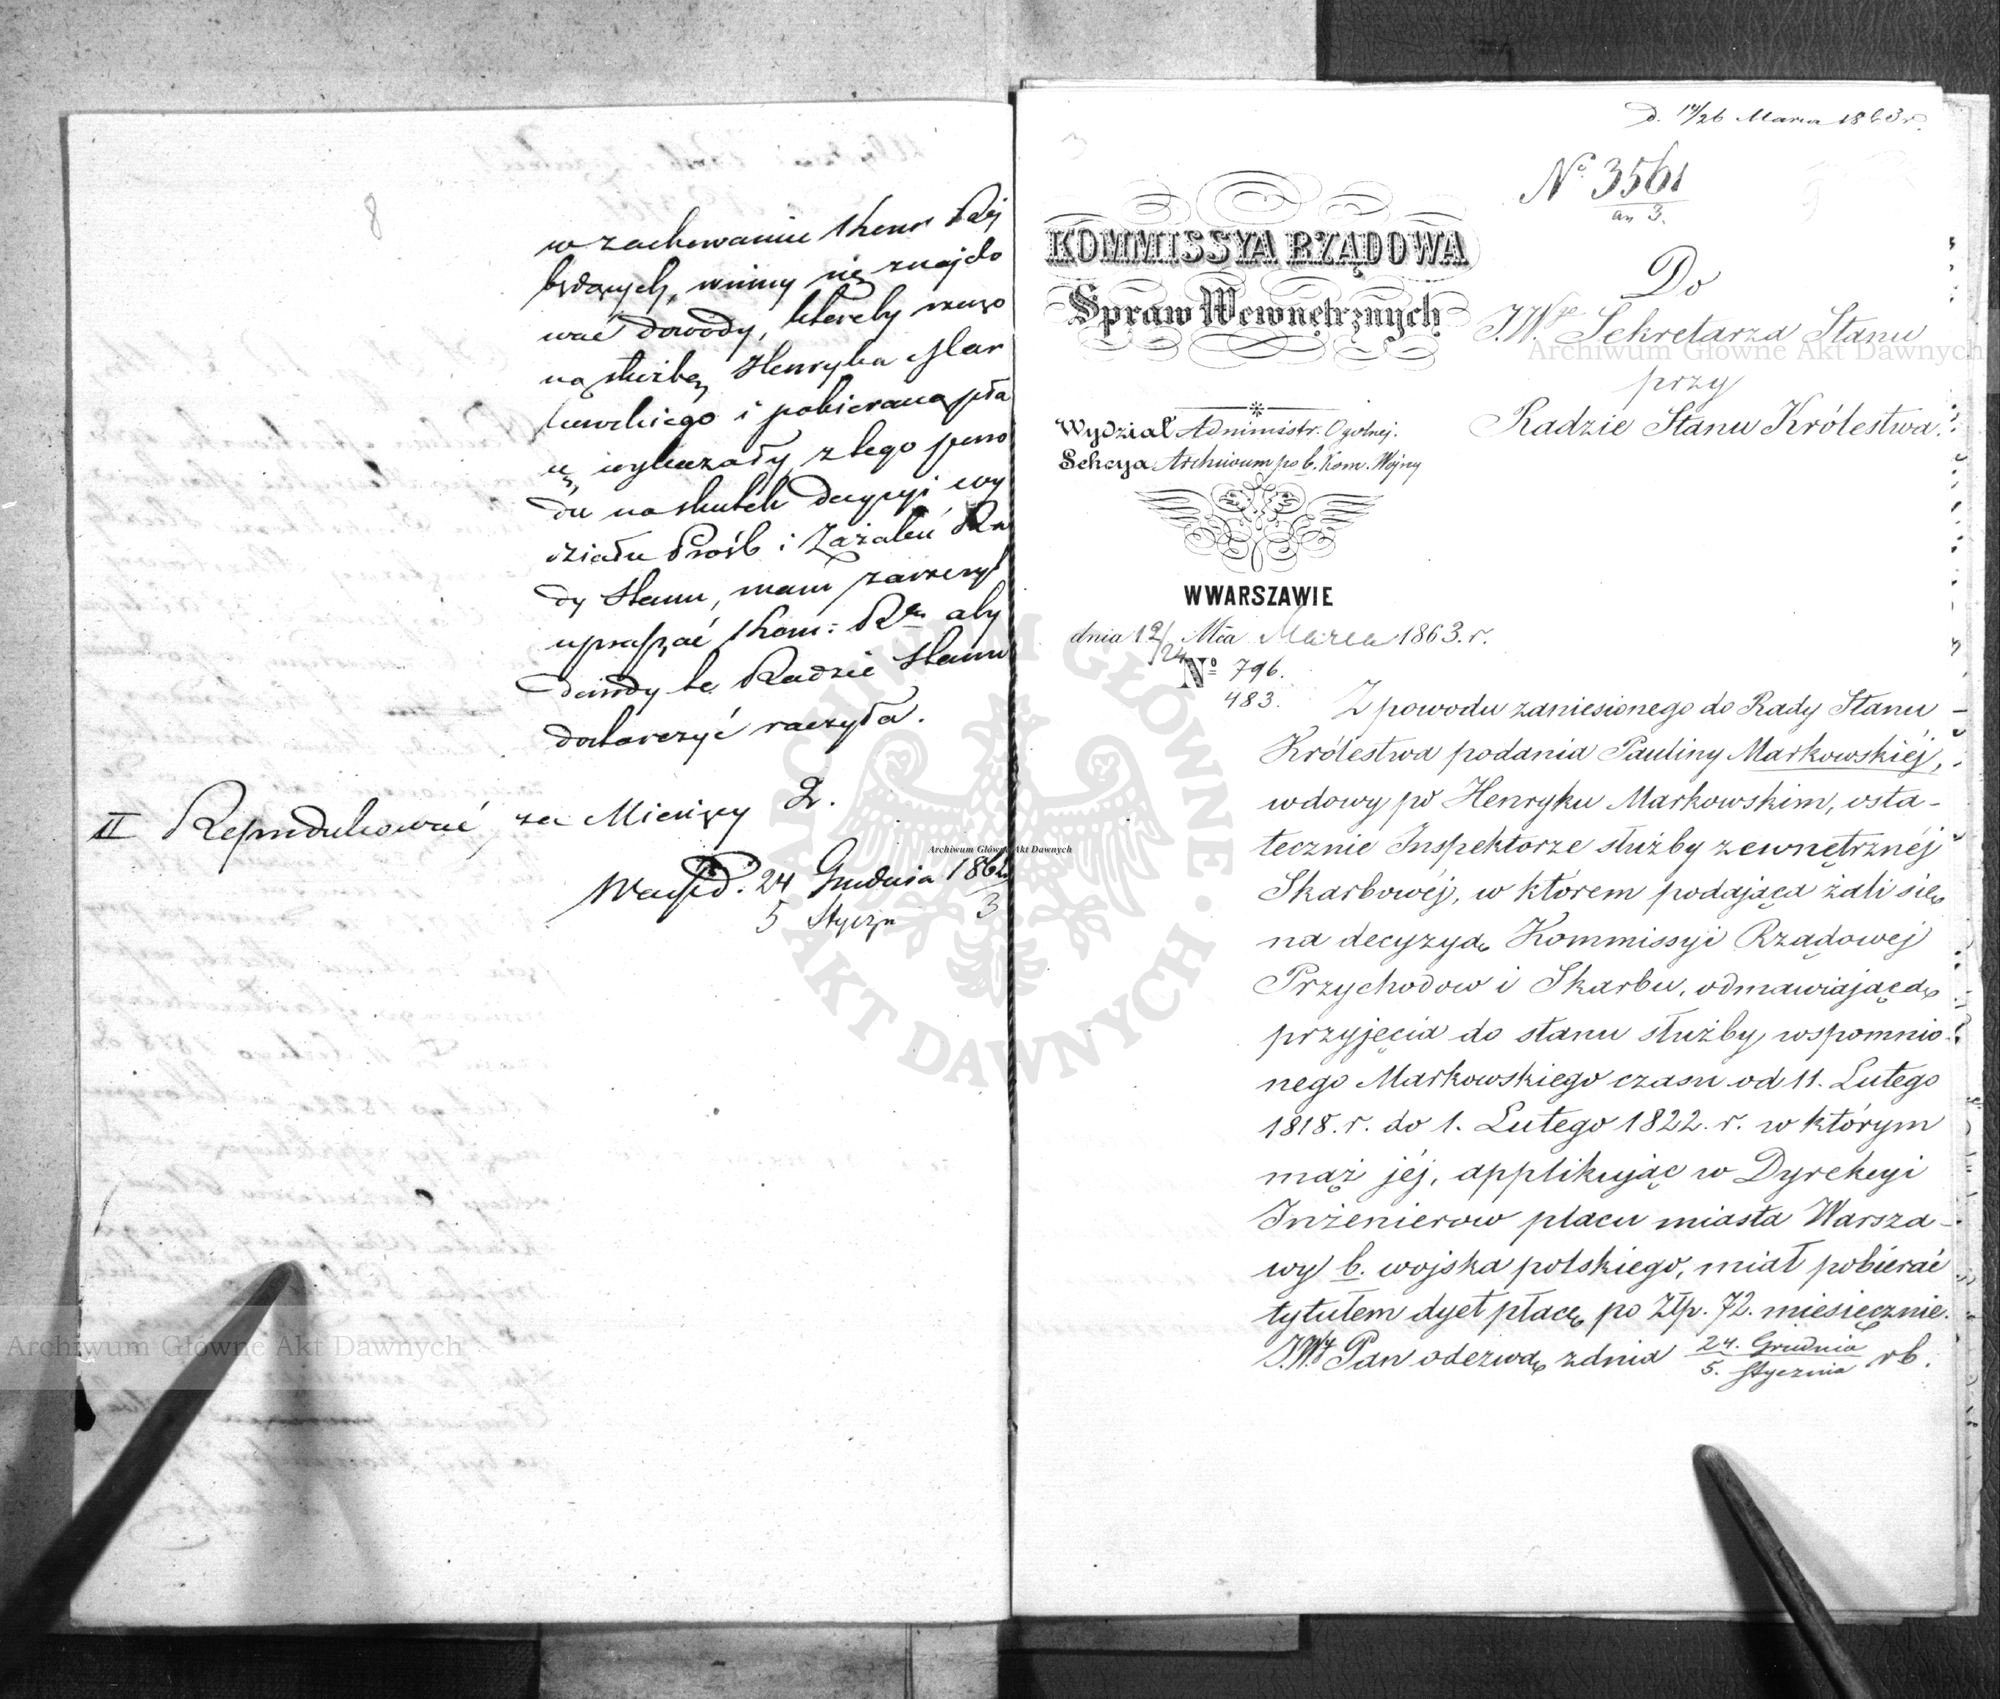 8
w zachowaniu Kom: Rej
będących, winny się znajdo
wać dowody, któreby rzeczo
ną służbę Henryka Mar
kowskiego i pobieraną pła
cę, wykazały, z tego powo
du na skutek decyzyi Wy
działu Prośb i Zażaleń Ra
dy Stanu, mam zaszczyt
upraszać Kom: R. aby
dowody te Radzie Stanu
dostarczyć raczyła.
II Reprodukować za Miesięcy 2.
24 Grudnia 1862
5 Styczn 3
d. 14/26 Marca 1863 r.
No 3561
an 3.
KOMMISSYA RZĄDOWA
Spraw Wewnętrznych
Do
J.W. Sekretarza Stanu
przy
Radzie Stanu Królestwa.
Wydział Administr. Ogólnej.
Sekcya Archiwum po b. Kom. Wojny
W WARSZAWIE
dnia 12/24 Mca Marca 1863. r.
No 796.
483.
Z powodu zaniesionego do Rady Stanu
Królestwa podania Pauliny Markowskiéj,
wdowy po Henryku Markowskim, osta-
tecznie Inspektorze służby zewnętrznéj
Skarbowéj, w ktorem podająca żali się
na decyzyę Kommissyi Rządowej
Przychodow i Skarbu, odmawiającą
przyjęcia do stanu służby wspomnio-
nego Markowskiego czasu od 11. Lutego
1818. r. do 1. Lutego 1822. r. w którym
mąż jéj, applikując w Dyrekcyi
Inżenierow placu miasta Warsza-
wy b. wojska polskiego, miał pobierać
tytułem dyet płacę po Złp. 72. miesięcznie.
J.W. Pan odezwą z dnia 24. Grudnia / 5. Stycznia rb.
Archiwum Główne Akt Dawnych
Archiwum Główne Akt Dawnych
Archiwum Główne Akt Dawnych
ARCHIWUM GŁÓWNE AKT DAWNYCH